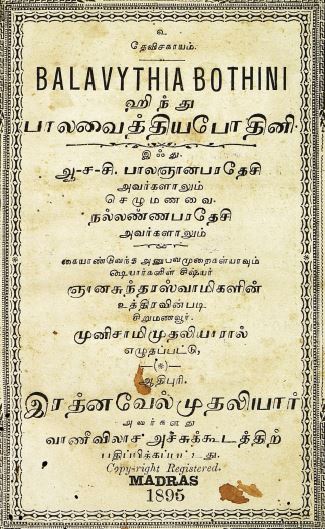 உ
தேவிசகாயம்.
BALAVYTHIA BOTHINI
ஹிந்து
பாலவைத்தியபோதினி.
இஃது.
ஆ-ச-சி. பாலஞானபாதேசி
அவர்களாலும்
செழுமணவை.
நல்லண்ணபாதேசி
அவர்களாலும்
கையாண்டுவந்த அனுபவமுறைகள்யாவும்
ஷையார்களின் சிஷ்யர்
ஞானசுந்தரஸ்வாமிகளின்
உத்திரவின்படி
சிறுமணலூர்.
முனிசாமிமுதலியாரால்
எழுதப்பட்டு,
ஆதிபுரி.
இரத்னவேல்முதலியார்
அவர்களது
வாணீவிலாச அச்சுக்கூடத்திற்
பதிப்பிக்கப்பட்டது.
Copyright Registered.
MADRAS
1895